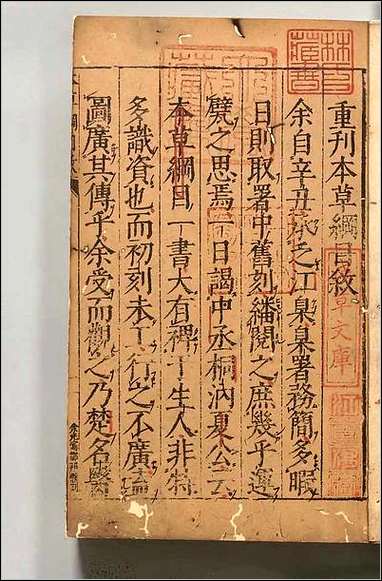 重刊本草綱目敘
余自辛丑承乏江臬臬署務簡多暇
日則取署中舊刻繙閱之庶幾乎運
甓之思焉一日謁中丞桐汭夏公云
本草綱目一書大有裨于生人非特
多識資也而初刻未工行之不廣盍
圖廣其傳乎余受而觀之乃楚名醫
林白
藏書
草文庫